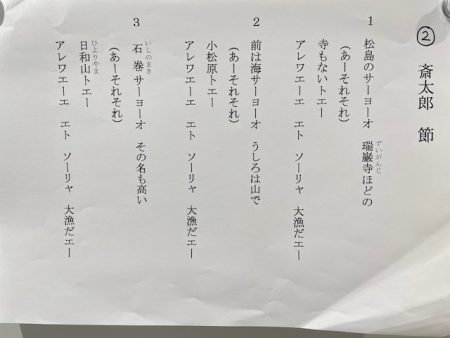 ②　斎太郎　節
１　松島のサーヨーオ　瑞巌寺ほどの
ずいがんじ
（あーそれそれ）
寺もないトエー
アレワエーエ　エト　ソーリャ　大漁だエー
２　前は海サーヨーオ　うしろは山で
（あーそれそれ）
小松原トエー
アレワエーエ　エト　ソーリャ　大漁だエー
３　石巻サーヨーオ　その名も高い
いしのまき
（あーそれそれ）
日和山トエー
ひよりやま
アレワエーエ　エト　ソーリャ　大漁だエー